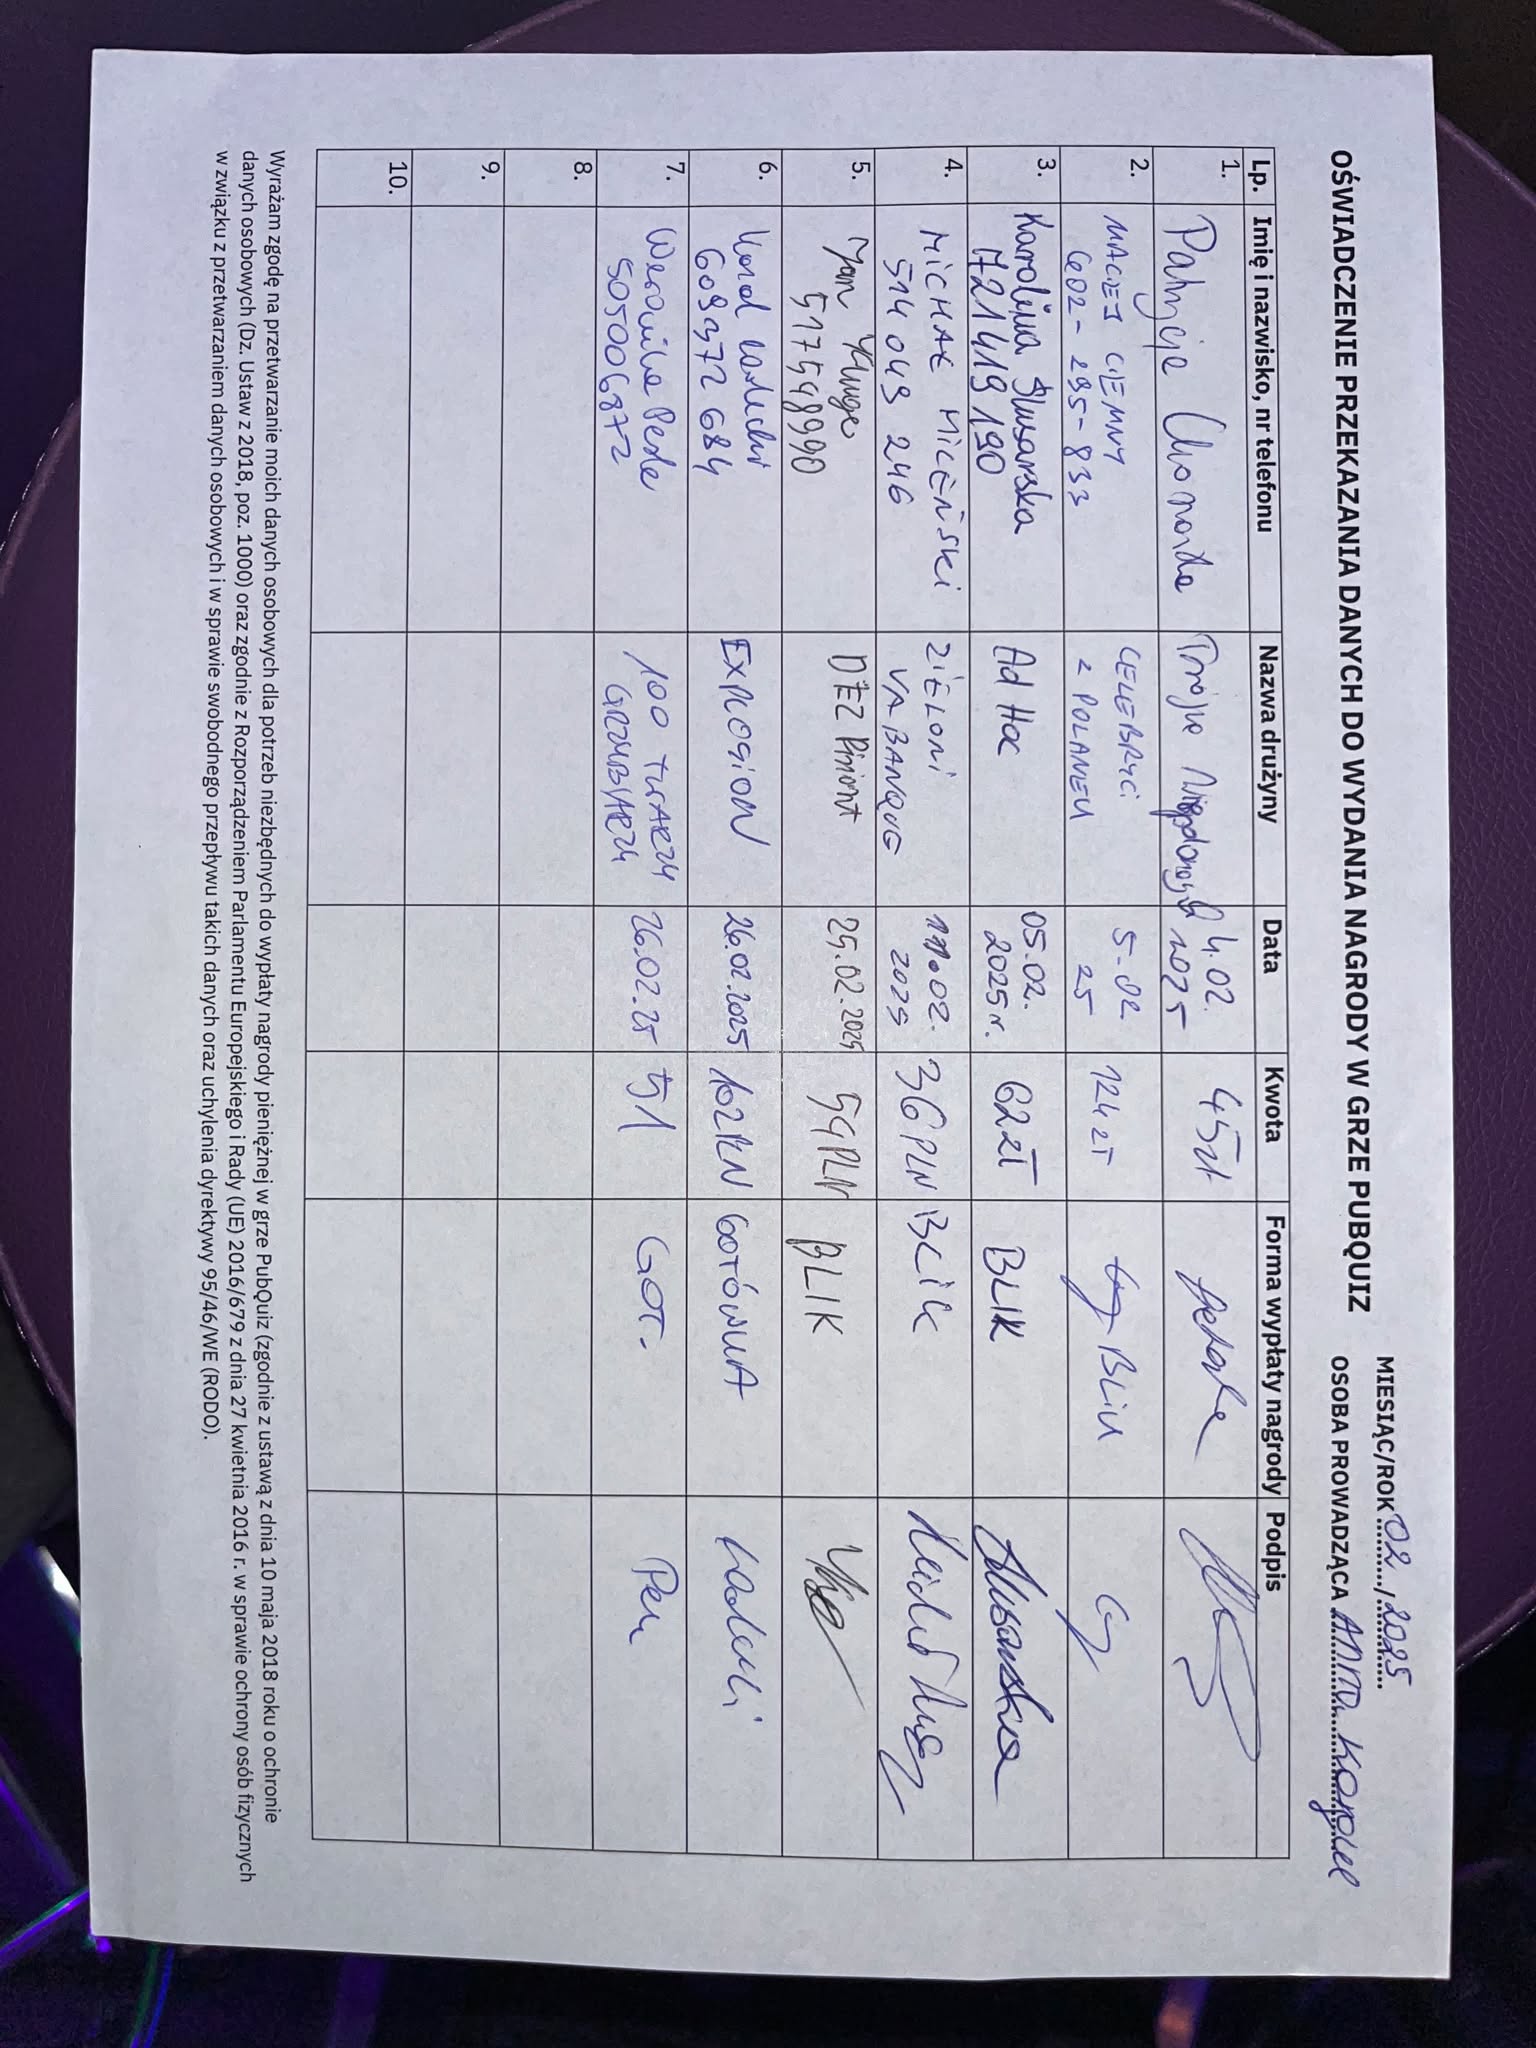 OŚWIADCZENIE PRZEKAZANIA DANYCH DO WYDANIA NAGRODY W GRZE PUBQUIZ
MIESIĄC/ROK 02 / 2025
OSOBA PROWADZĄCA Anna
Lp. Imię i nazwisko, nr telefonu Nazwa drużyny Data Kwota Forma wypłaty nagrody Podpis
1. Patrycja Trójka 4.02. 45zł
2025
2. MACIEJ CIEMNY CELEBRYCI 5.02. 124 zŁ BLIK
602-295-833 Z POLANEU 25
3. Karolina Ślusarska Ad Hoc 05.02. 62zł BLIK Ślusarska
721419190 2025r.
4. MICHAŁ MILEŃSKI ZIELONI 11.02. 36 PLN BLIK
514 049 246 VA BANQUE 2025
5. Jan Kluge DEZ Piniont 25.02.2025 59PLN BLIK
517548990
6. Karol EXPLOSION 26.02.2025 102PLN GOTÓWKA
609372684
7. Weronika 100 TWARZY 26.02.25 51 GOT.
505006872 GRZYBIARZY
8.
9.
10.
Wyrażam zgodę na przetwarzanie moich danych osobowych dla potrzeb niezbędnych do wypłaty nagrody pieniężnej w grze PubQuiz (zgodnie z ustawą z dnia 10 maja 2018 roku o ochronie
danych osobowych (Dz. Ustaw z 2018, poz. 1000) oraz zgodnie z Rozporządzeniem Parlamentu Europejskiego i Rady (UE) 2016/679 z dnia 27 kwietnia 2016 r. w sprawie ochrony osób fizycznych
w związku z przetwarzaniem danych osobowych i w sprawie swobodnego przepływu takich danych oraz uchylenia dyrektywy 95/46/WE (RODO).